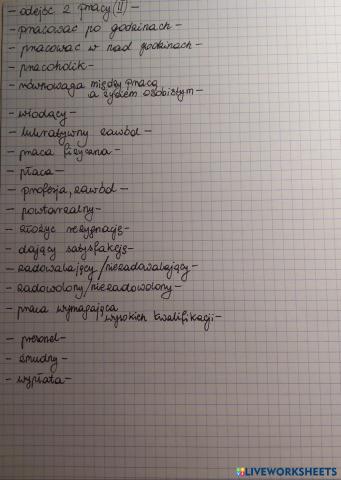 - odejść z pracy (II) -
- pracować po godzinach -
- pracować w nad godzinach -
- pracoholik -
- równowaga między pracą
a życiem osobistym -
- wiodący -
- lukratywny zawód -
- praca fizyczna -
- płaca -
- profesja, zawód -
- powtarzalny -
- złożyć rezygnację -
- dający satysfakcję -
- zadowalający/niezadowalający -
- zadowolony/niezadowolony -
- praca wymagająca
wysokich kwalifikacji -
- personel -
- żmudny -
- wypłata -
LIVEWORKSHEETS